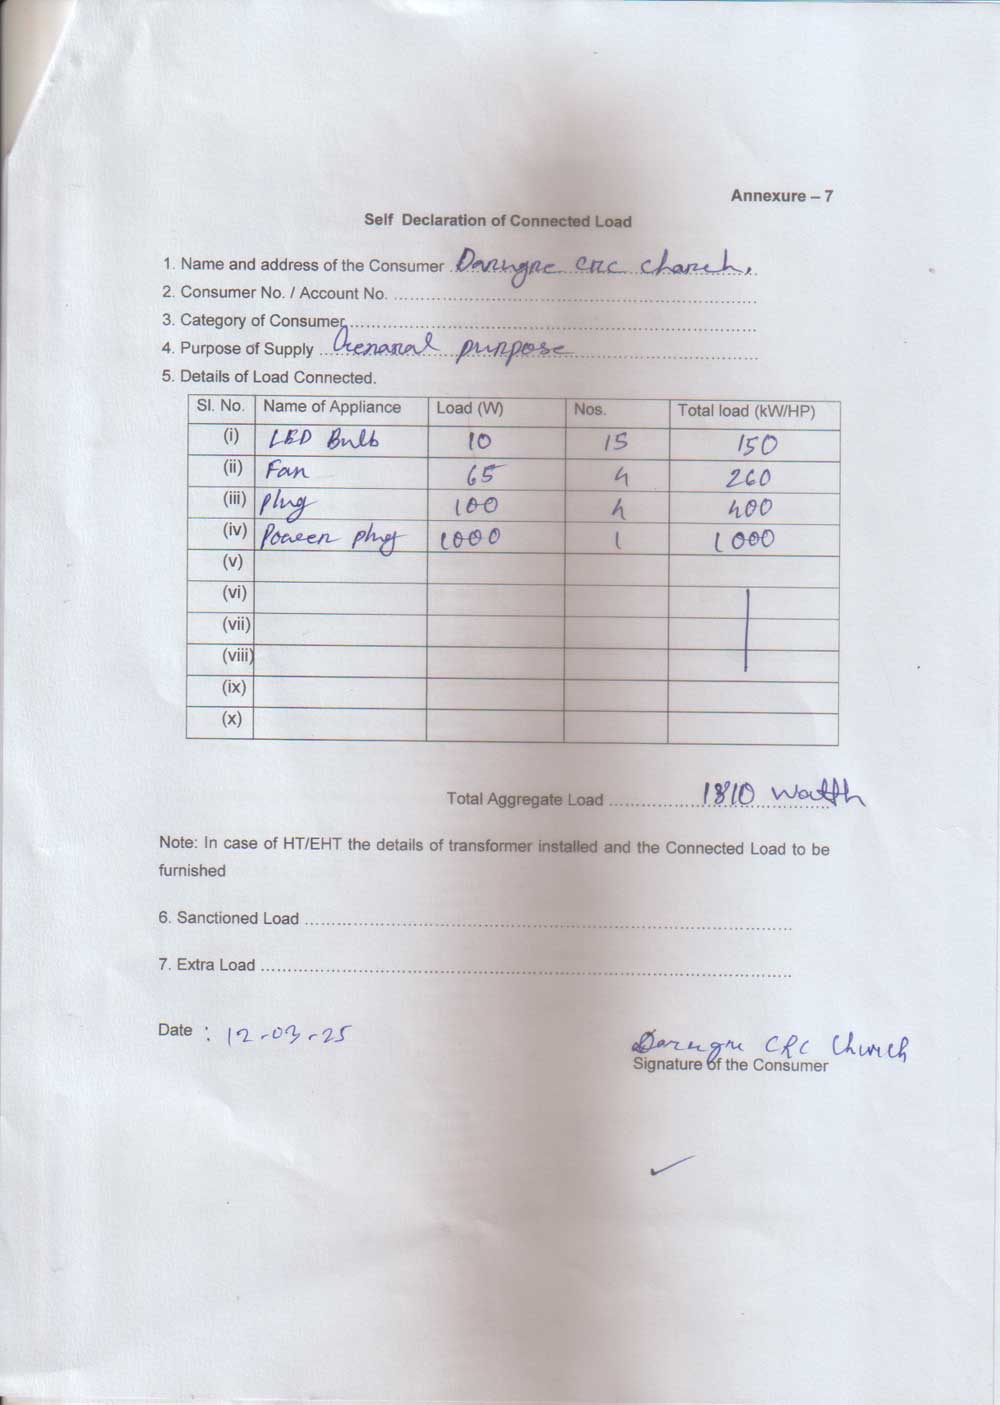 Annexure – 7
Self Declaration of Connected Load
1. Name and address of the Consumer Darugre CRC Church,
2. Consumer No. / Account No.
3. Category of Consumer
4. Purpose of Supply Genaral purpose
5. Details of Load Connected.
Sl. No. Name of Appliance Load (W) Nos. Total load (kW/HP)
(i) LED Bulb 10 15 150
(ii) Fan 65 4 260
(iii) Plug 100 4 400
(iv) Power plug 1000 1 1000
(v)
(vi)
(vii)
(viii)
(ix)
(x)
Total Aggregate Load 1810 Watth
Note: In case of HT/EHT the details of transformer installed and the Connected Load to be
furnished
6. Sanctioned Load
7. Extra Load
Date : 12-03-25
Darugre CRC Church
Signature of the Consumer